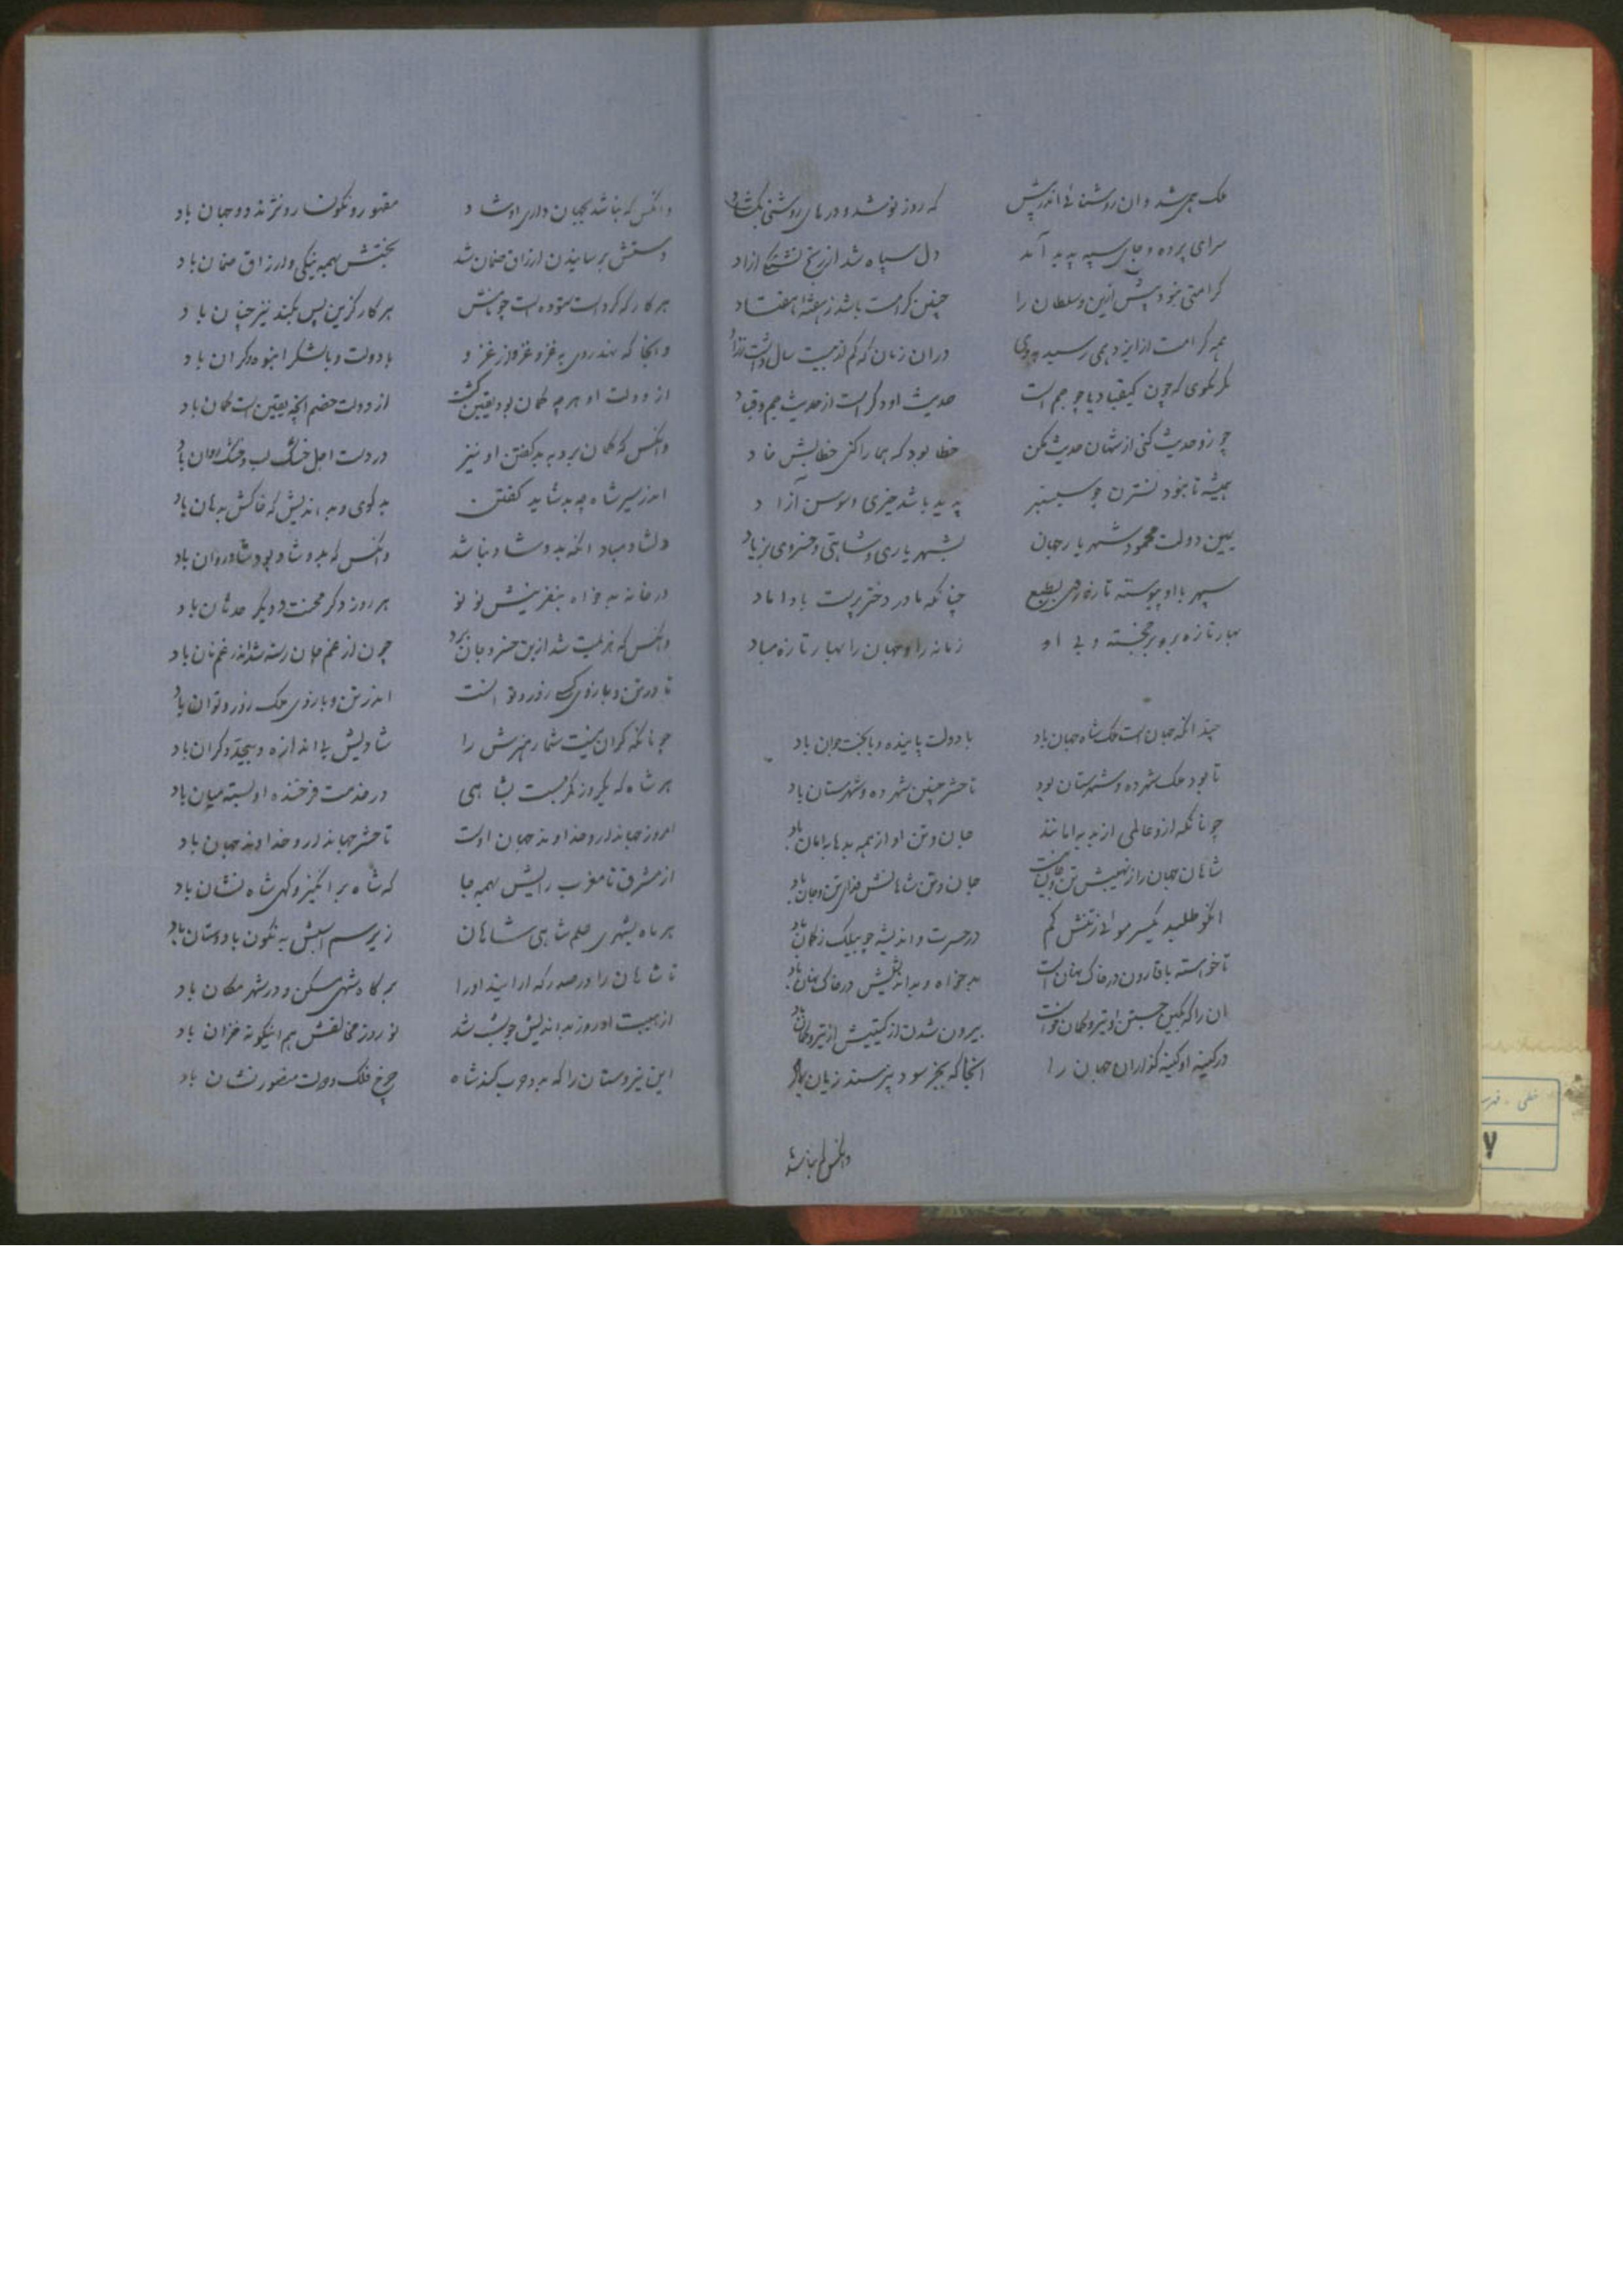 ملک همی شد و ان روشنائی اندر پیش که روز نو شد و درهای روشنی بگشاد
سرای پرده و جای سپه پدید آمد دل سپاه شد از رنج تشنگی ازاد
کرامتی نبود بیش ازین و سلطان را چنین کرامت باشد ز هفته هفتاد
همه کرامت از ایزد همی رسید بدوی دران زمان که کم از بیست سال داشت
مگر نگوی که چون کیقباد یا چو جم است حدیث او دگر است از حدیث جم و قباد
چو زو حدیث کنی از شهان حدیث مکن خطا بود که همی راکنی خطایش
همیشه تا نبود نسترن چو سیسنبر پدید باشد خیری و سوسن ازاد
یمین دولت محمود شهریار جهان بشهریاری و شاهی و خسروی بزیاد
سپهر با او پیوسته تازه روی بطبع چنانکه مادر دختر پرست با داماد
بهار تازه برو بر خجسته و بی او زمانه را و جهان را بهار تازه مباد
چندانکه جهان است ملک شاه جهان باد با دولت پاینده و با بخت جوان باد
تا بود ملک شهر ده و شهرستان بود تا حشر چنین شهر ده و شهرستان باد
چونانکه ازو عالمی از بد بامانند جان و تن او از همه بدها بامان باد
شاهان جهان را ز نهیبش تن و جان نیست جان و تن شاهانش فدای تن و جان باد
انکو طلبد یکسر موئی ز تنش کم در حسرت و اندیشه چو ز کان باد
تا خواسته با قارون در خاک نهان است بدخواه و بداندیشش در خاک نهان باد
ان را که بکین جستن او تیر و کمان خواست بیرون شدن از گیتیش از تیر و کمان باد
در کینه او کینه گذاران جهان را انجا که بجز سود نپرسند زیان باد
وانکس که نباشد
وانکس که نباشد بجهان داری او شاد مقهور و نگونسار و نژند دو جهان باد
دستش برسانیدن ارزاق ضمان شد بختش بهمه نیکی و ارزاق ضمان باد
هر کار که کردست ستوده است چو هر کار کزین پس بکند نیز چنان باد
وانجا که نهد روی بغزو و غزو از غزو با دولت و با لشکر انبوه و گران باد
از دولت او هر چه گمان بود یقین گشت از دولت خصم انچه یقین است گمان باد
وانکس که گمان برد به بد گفتن او نیز در دست اجل خشک لب و خشک روان باد
اندر سیر شاه چه بد شاید گفتن بدگوی و بداندیش که خاکش بدهان باد
دلشاد مباد انکه بدو شاد نباشد وانکس که بدو شاد بود شاد روان باد
در خانه بدخواه بنفرینش نو نو هر روز دگر محنت و دیگر حدثان باد
وانکس که هزیمت شد ازین خسرو و جان برد چون از غم جان رسته شد اندر غم نان باد
تا در تن و بازوی کسی زور و توانست اندر تن و بازوی ملک زور و توان باد
چونانکه کران نیست شمار هنرش را شادیش بی اندازه و بیحد و کران باد
هر شاه که یکروز کمر بست بشاهی در خدمت فرخنده او بسته میان باد
امروز جهاندار و خداوند جهان اوست تا حشر جهاندار و خداوند جهان باد
از مشرق تا مغرب رایش بهمه جا که شاه برانگیز و گهی شاه نشان باد
هر ماه بشهری علم شاهی شاهان زیر سم اسبش نگون باد و ستان باد
تا شاهان را در صدر که ارایند اورا بر گاه شهی مسکن و در شهر مکان باد
از هیبت او روز بداندیش چو شب شد نوروز مخالفش هم اینگونه خزان باد
این نیز و ستان را که بدو حرب کند شاه چرخ فلک و دولت منصور نشان باد